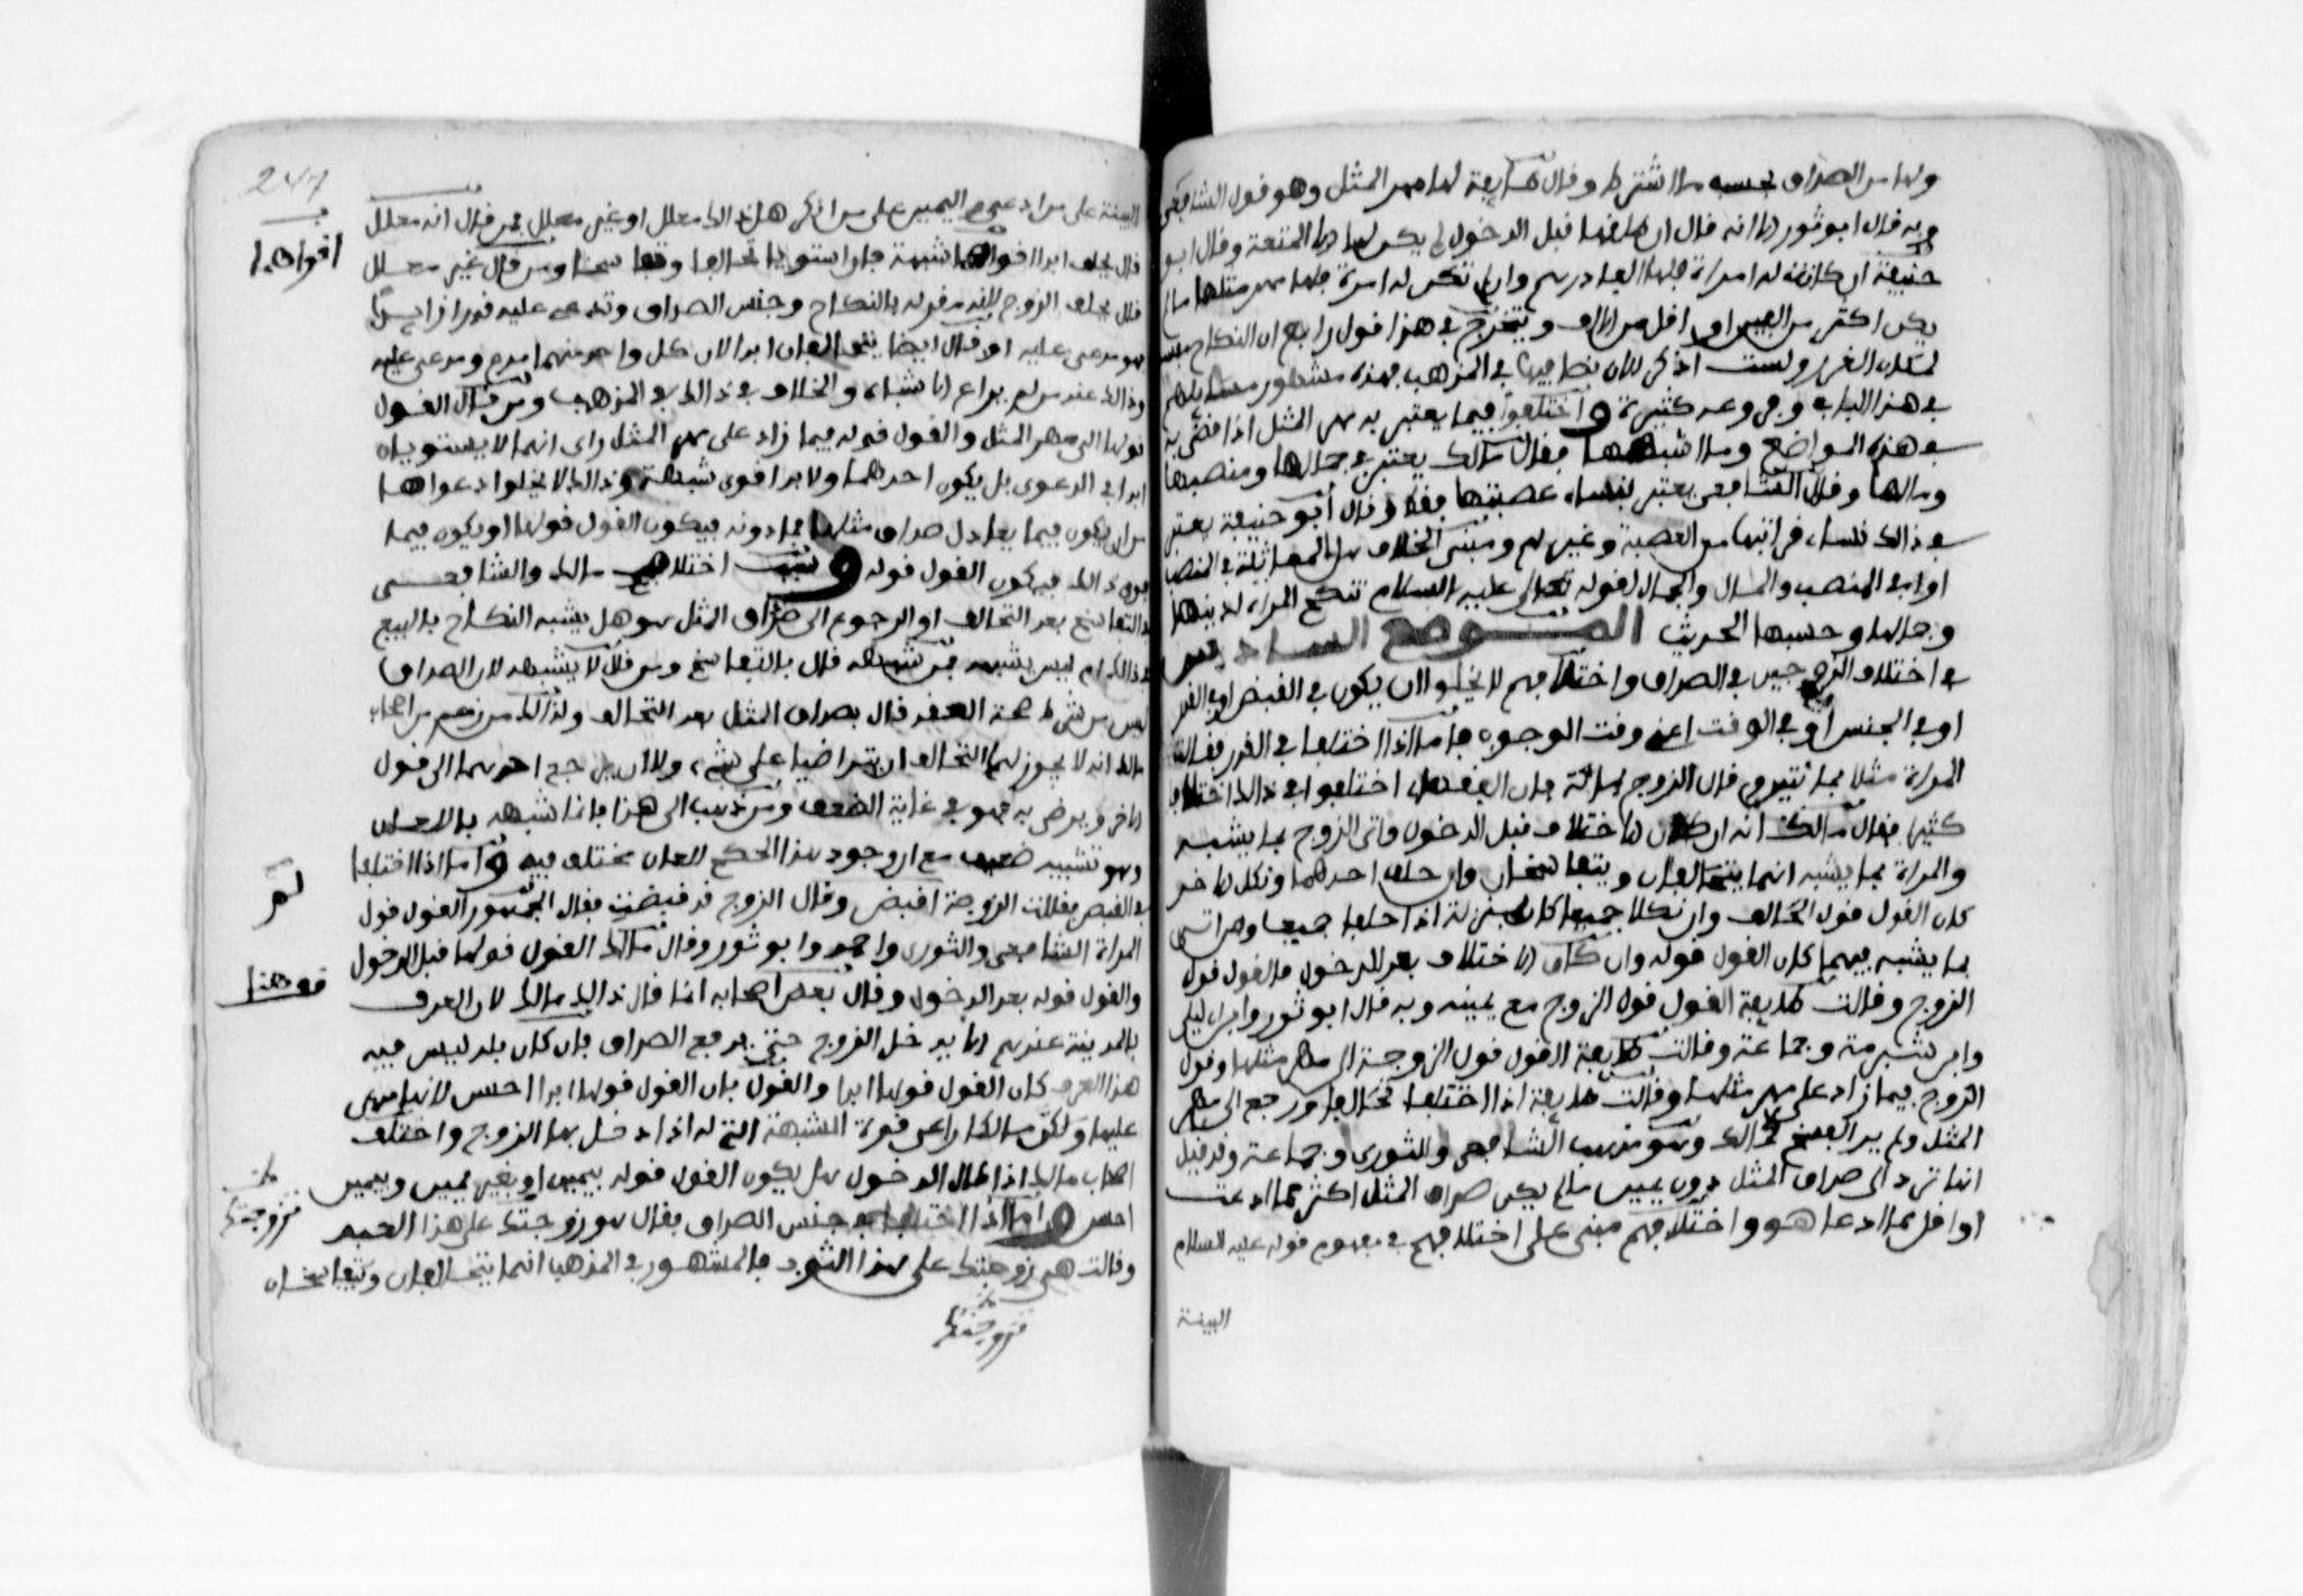 ولها من الصداق بحسب ما اشترط وقال طائفة لها مهر المثل وهو قول الشافعي
وبه قال ابو ثور الا انه قال ان طلقها قبل الدخول لم يكن لها الا المتعة وقال ابو
حنيفة ان كانت له امراة فلها الف درهم وان لم تكن له امرة فلها مهر مثلها ما لم
يكن اكثر من الفين او اقل من الالف ويتخرج في هذا قول رابع ان النكاح مفسوخ
لمكان الغرر ولست اذكر الان نصا فيها في المذهب فهذه مشهور مسائلهم
في هذا الباب وفروعه كثيرة واختلفوا فيما يعتبر به مهر المثل اذا قضي به
في هذه المواضع وما اشبهها فقال مالك يعتبر في جمالها ومنصبها
ومالها وقال الشافعي يعتبر بنساء عصبتها فقط وقال أبو حنيفة يعتبر
في ذالك نساء قرابتها من العصبة وغيرهم ومبنى الخلاف هل المماثلة في المنصب
او في المنصب والمال والجمال لقوله عليه السلام تنكح المراة لدينها
وجمالها وحسبها الحديث الموضع السادس
في اختلاف الزوجين في الصداق واختلافهم لا يخلوا ان يكون في القبض او في القدر
او في الجنس او في الوقت اعني وقت الوجوب فاما اذا اختلفا في القدر فقالت
المراة مثلا بمائتين وقال الزوج بمائة فان الفقهاء اختلفوا في ذالك اختلافا
كثيرا فقال مالك انه ان كان الاختلاف قبل الدخول واتى الزوج بما يشبه
والمراة بما يشبه انهما يتحالفان ويتفاسخان وان حلف احدهما ونكل الاخر
كان القول قول الحالف وان نكلا جميعا كان بمنزلة اذا حلفا جميعا ومن اتى
بما يشبه منهما كان القول قوله وان كان الاختلاف بعد الدخول فالقول قول
الزوج وقالت طايفة القول قول الزوج مع يمينه وبه قال ابو ثور وابن ابي ليلى
وابن شبرمة وجماعة وقالت طايفة القول قول الزوجة الى مهر مثلها وقول
الزوج فيما زاد على مهر مثلها وقالت طايفة اذا اختلفا تحالفا ورجع الى مهر
المثل ولم ير الفسخ كمالك وهو مذهب الشافعي والثوري وجماعة وقد قيل
انها ترد الى صداق المثل دون يمين ما لم يكن صداق المثل اكثر مما ادعت
او اقل مما ادعا هو واختلافهم مبني على اختلافهم في مفهوم قوله عليه السلام
البينة
247
البينة على من ادعى واليمين على من انكر هل ذالك معلل او غير معلل فمن قال انه معلل
قال يحلف ابدا اقواهما شبهة فان استويا تحالفا وتفاسخا ومن قال غير معلل
اقواهما
قال يحلف الزوج لانه مقر له بالنكاح وجنس الصداق وتدعي عليه قدرا زايدا
فهو مدعى عليه وقال ايضا يتحالفان ابدا لان كل واحد منهما مدع ومدعى عليه
وذالك عند من لم يراع الاشباه والخلاف في ذالك في المذهب ومن قال القول
قولها الى مهر المثل والقول قوله فيما زاد على مهر المثل راى انهما لا يستويان
ابدا في الدعوى بل يكون احدهما ولا بد اقوى شبهة وذالك لا يخلوا دعواها
من ان يكون فيما يعادل صداق مثلها فما دونه فيكون القول قولها او يكون فيما
فوق ذالك فيكون القول قوله وسبب اختلاف مالك والشافعي
في التفاسخ بعد التحالف او الرجوع الى صداق المثل هو هل يشبه النكاح بالبيع
في ذالك ام ليس يشبه فمن شبهه قال بالتفاسخ ومن قال لا يشبهه لان الصداق
ليس من شرط صحة العقد قال بصداق المثل بعد التحالف ولذالك من زعم من اصحاب
مالك انه لا يجوز لهما التحالف ان يتراضيا على شيء ولا ان يرجع احدهما الى قول
الاخر ويرضى به فهو في غاية الضعف ومن ذهب الى هذا فانما شبهه باللعان
وهو تشبيه ضعيف مع ان وجود هذا الحكم للعان مختلف فيه واما اذا اختلفا
في القبض فقالت الزوجة لم اقبض وقال الزوج قد قبضت فقال الجمهور القول قول
لم
المراة الشافعي والثوري واحمد وابو ثور وقال مالك القول قولها قبل الدخول
والقول قوله بعد الدخول وقال بعض اصحابه انما قال ذالك مالك لان العرف
بالمدينة عندهم الا يدخل الزوج حتى يدفع الصداق فان كان بلد ليس فيه
هذا العرف كان القول قولها ابدا والقول بان القول قولها ابدا احسن لانها مدعى
عليها ولكن مالكا راعى قوة الشبهة التي له اذا دخل بها الزوج واختلف
اصحاب مالك اذا طال الدخول هل يكون القول قوله بيمين او بغير يمين وبيمين
احسن واما اذا اختلفا في جنس الصداق فقال هو زوجتك على هذا العبد
وقالت هي زوجتك على هذا الثوب فالمشهور في المذهب انهما يتحالفان ويتفاسخان